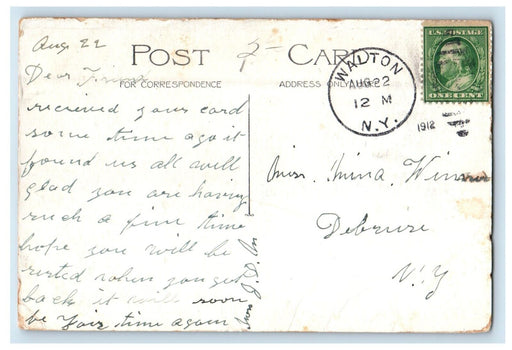 Aug 22
POST CARD
FOR CORRESPONDENCE
ADDRESS ONLY
WALTON
AUG 22
12 M
N.Y.
1912
U.S. POSTAGE
ONE CENT
Dear
recieved your card
some time ago it
found us all well
glad you are having
such a fine time
hope you will be
rested when you get
back it will soon
be Fair time again
Mrs J. D.
Miss. Mina.
Debruce
N.Y